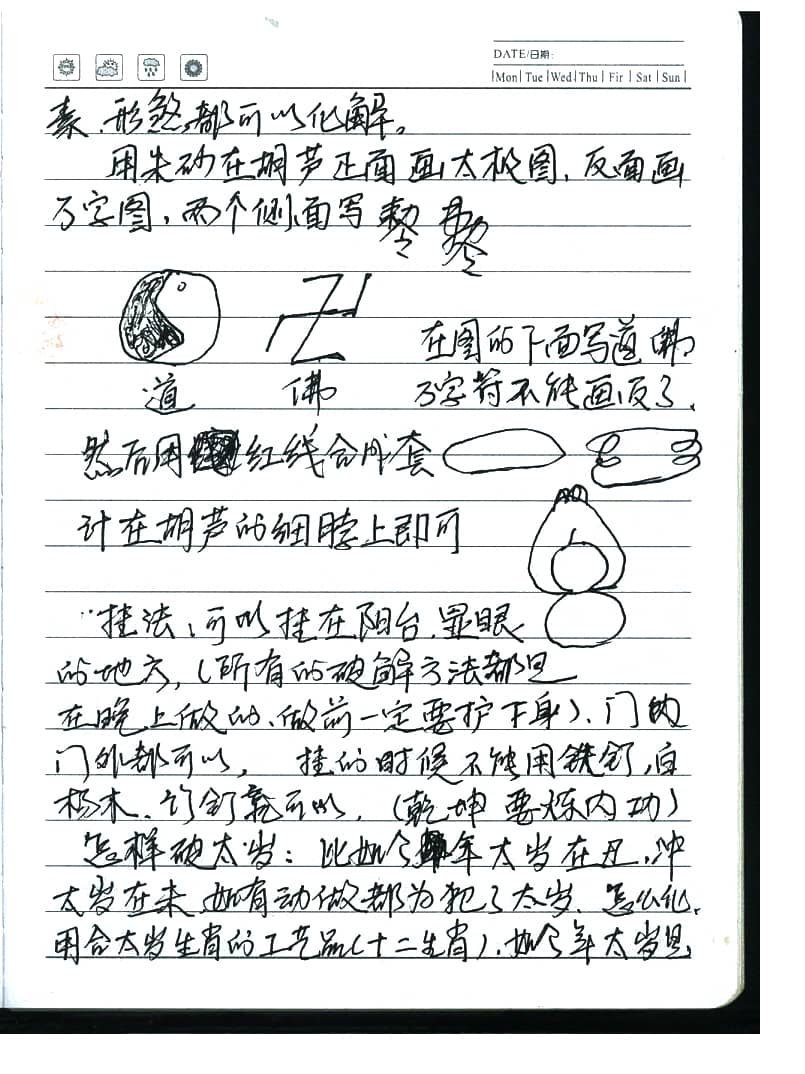 DATE/日期:
Mon Tue Wed Thu Fir Sat Sun
素、形煞,都可以化解。
用朱砂在胡芦正面画太极图,反面画
万字图,两个侧面写
卍
在图的下面写道 佛
道 佛 万字符不能画反了.
然后用 红线合成套
计在胡芦的细脖上即可
挂法:可以挂在阳台.显眼
的地方,(所有的破解方法都是
在晚上做的、做前一定要护下身)、门内
门外都可以, 挂的时候不能用铁钉,白
杨木、竹钉就可以. (乾坤要炼内功)
怎样破太岁:比如今年太岁在丑,冲
太岁在未,如有动做都为犯了太岁、怎么化,
用合太岁生肖的工艺品(十二生肖).如今年太岁是